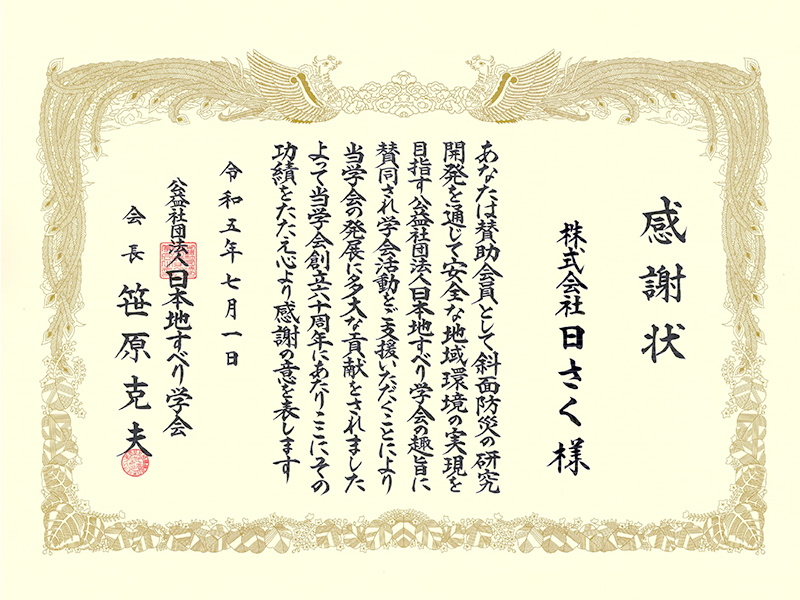 感謝状
株式会社 日さく 様
あなたは賛助会員として斜面防災の研究
開発を通じて安全な地域環境の実現を
目指す公益社団法人日本地すべり学会の趣旨に
賛同され学会活動をご支援いただくことにより
当学会の発展に多大な貢献をされました
よって当学会創立六十周年にあたりここにその
功績をたたえ心より感謝の意を表します
令和五年七月一日
公益社団法人日本地すべり学会
会長 笹原克夫